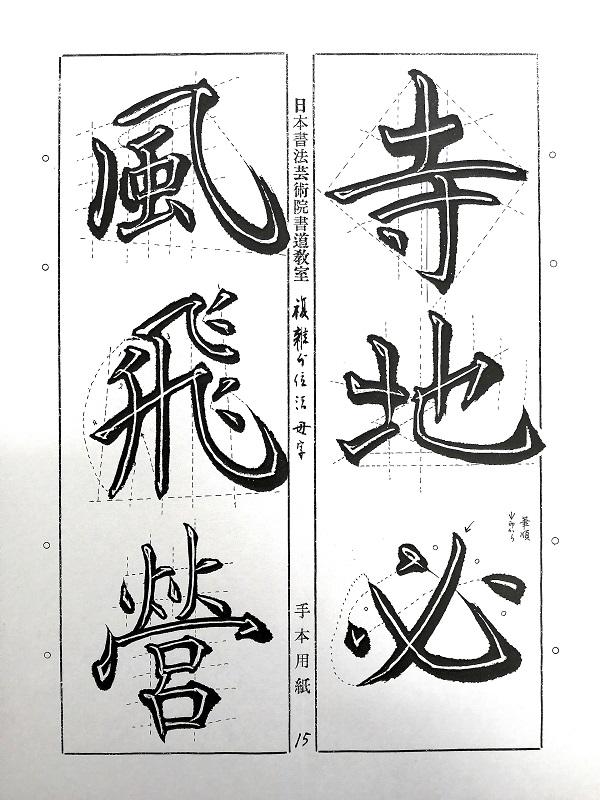 寺地必
筆順
日本書法芸術院書道教室
複雑分位法
母字
手本用紙
15
風飛營